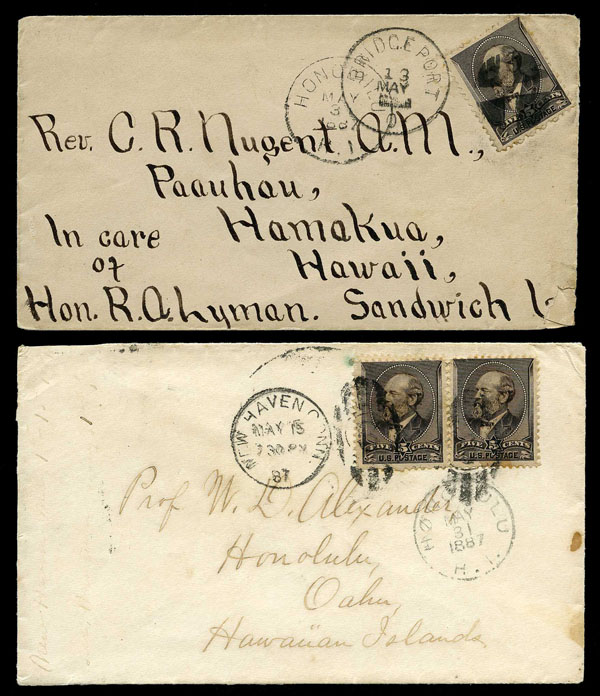 BRIDGEPORT
13
MAY
HONO
MAY
31
188
Rev. C. R. Nugent A.M.,
Paauhau,
In care Hamakua,
of Hawaii,
Hon. R. A. Lyman. Sandwich I.
FIVE 5 CENTS FIVE 5 CENTS
U.S. POSTAGE U.S. POSTAGE
NEW HAVEN CONN.
MAY 15
7 30 PM
87
HONOLULU
MAY
31
1887
H. I.
Prof W. D. Alexander
Honolulu,
Oahu,
Hawaiian Islands